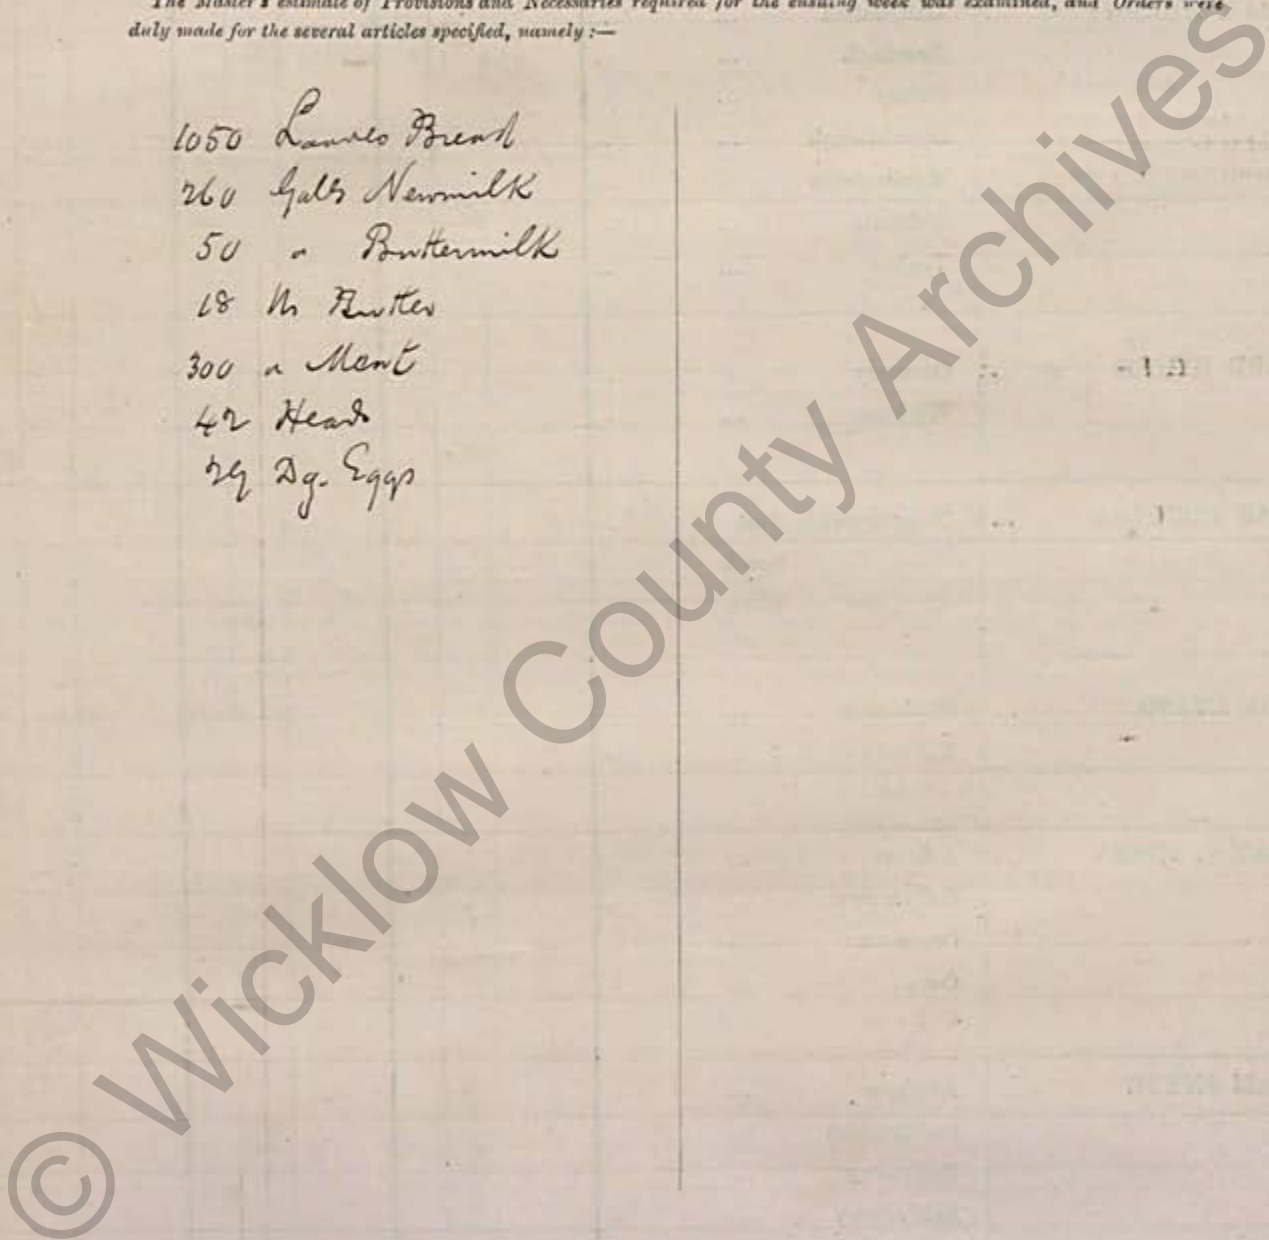 The Master's estimate of Provisions and Necessaries required for the ensuing week was examined, and Orders were
duly made for the several articles specified, namely :—
1050 Loaves Bread
260 Galls Newmilk
50 " Buttermilk
18 lbs Butter
300 " Meat
42 Heads
29 Dz. Eggs
© Wicklow County Archives